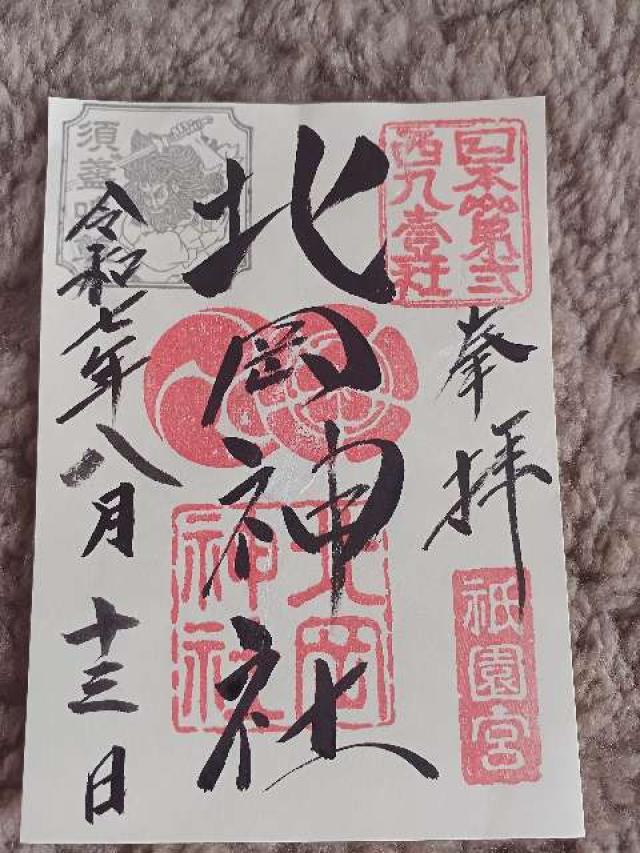 日本第弐
西九壹社
奉拝
祇園宮
北岡神社
北岡
神社
令和七年八月十三日